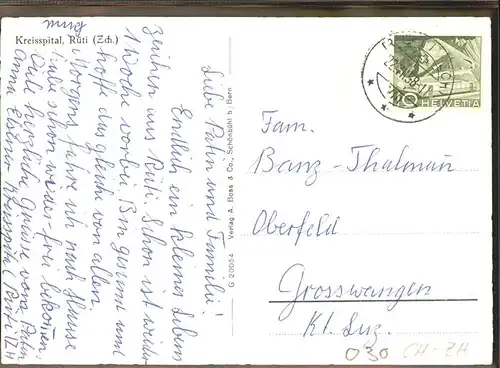 Kreisspital, Rüti (Zch.)
Liebe Patin und Familie!
Endlich ein kleines Lebens
zeichen aus Rüti. Schon ist wieder
1 Woche vorbei. Bin gesund und
hoffe das gleich von allen.
Morgens fahre ich nach Hause
habe schon wieder frei bekommen.
Viele herzliche Grüsse vom
Anna Kreisspital Rüti ZH
G 20054 Verlag A. Boss & Co., Schönbühl b/Bern
10 HELVETIA
Fam.
Banz-Thalmann
Oberfeld
Grosswangen
Kt. Luz.
030 CH-ZH